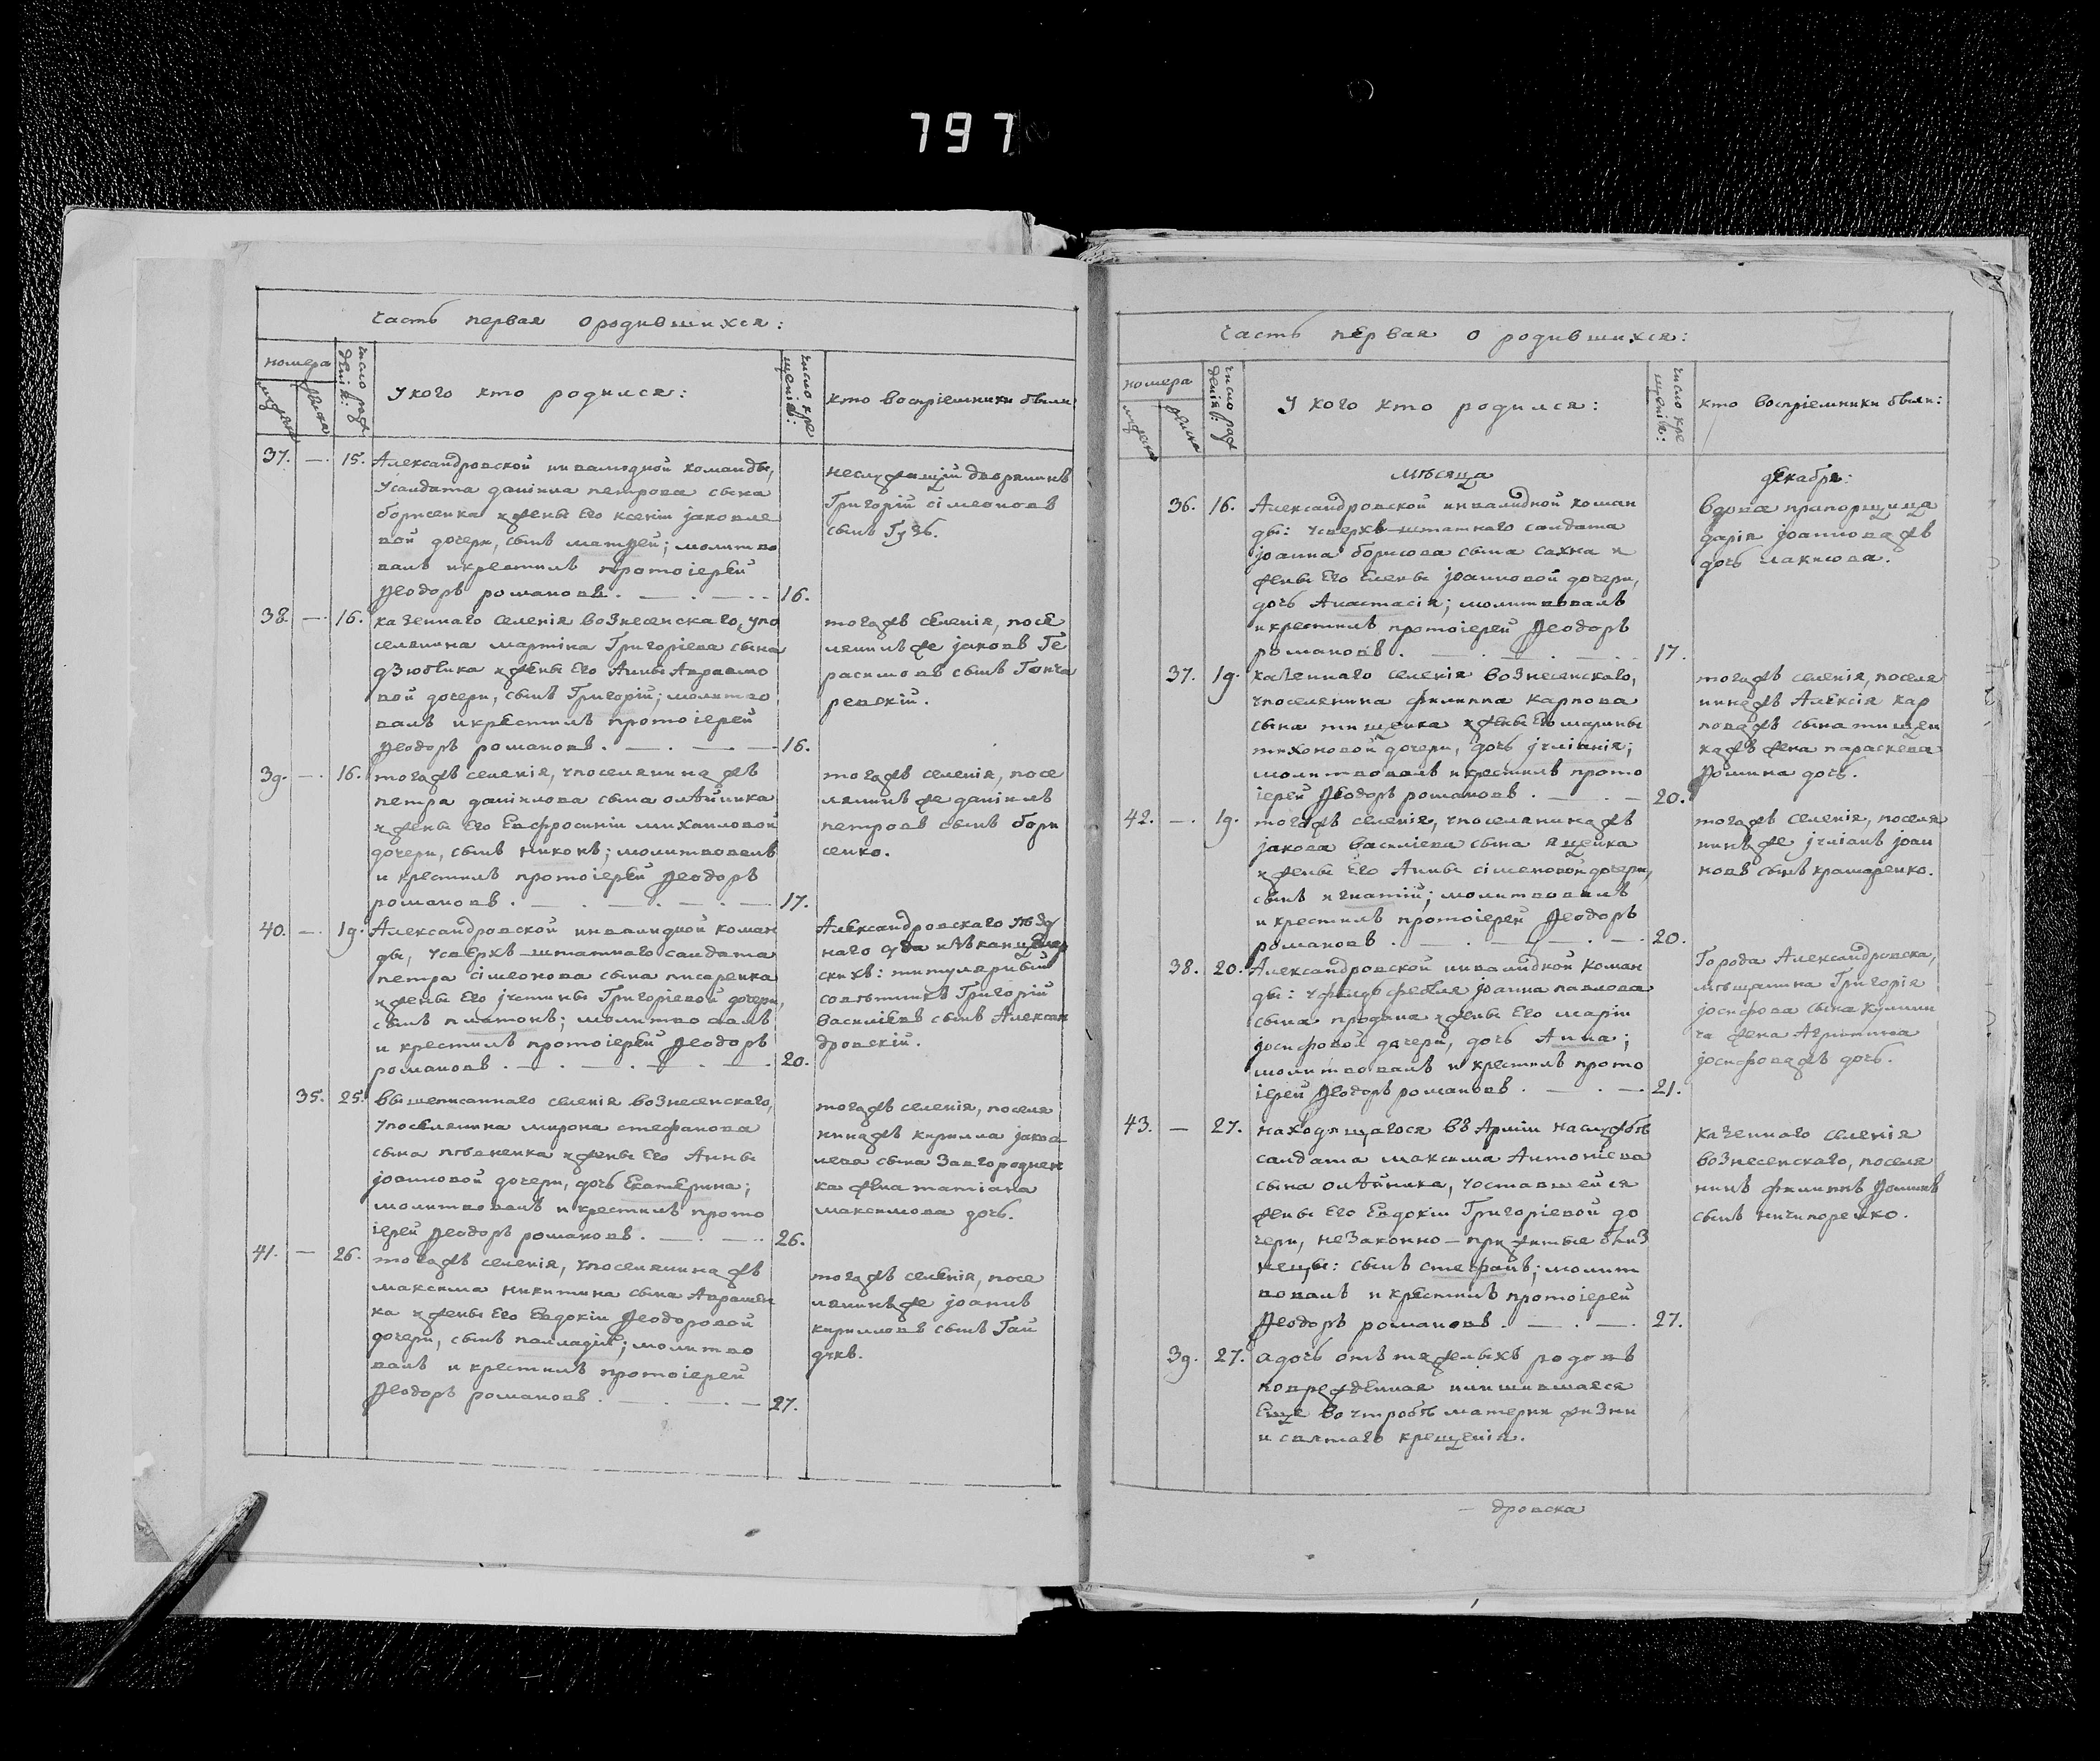 797
часть первая о родившихся:
номера
мужеска
женска
число рож
деній:
У кого кто родился:
число кре
щеній:
кто воспріемники были
37. — 15. Александровской инвалидной команды,
у салдата даніила петрова сына
борисенка и жены его ксеніи јаковле
вой дочери, сынъ матѳей; молитво
валъ и крестилъ протоіерей
Ѳеодоръ романовъ. — . — . — 16.
неслужащій дворянинъ
Григорій сімеоновъ
сынъ Гузь.
38. — 16. казеннаго селенія вознесенскаго, у по
селянина мартина Григоріева сына
дзюбика и жены его Анны Авраамо
вой дочери, сынъ Григорій; молитво
валъ и крестилъ протоіерей
Ѳеодоръ романовъ. — . — . — 16.
тогажъ селенія, посе
лянинъ же јаковъ Ге
расимовъ сынъ Гонча
ревскій.
39. — 16. тогажъ селенія, у поселянина жъ
петра даніилова сына олѣйника
и жены его Евфросиніи михаиловой
дочери, сынъ никонъ; молитвовалъ
и крестилъ протоіерей Ѳеодоръ
романовъ. — . — . — . — 17.
тогажъ селенія, посе
лянинъ же даніилъ
петровъ сынъ бори
сенко.
40. — 19. Александровской инвалидной коман
ды, у сверхъ-штатнаго салдата
петра сімеонова сына писаренка
и жены его јустины Григоріевой дочери,
сынъ платонъ; молитвовалъ
и крестилъ протоіерей Ѳеодоръ
романовъ. — . — . — . — 20.
Александровскаго уѣзд
наго суда
скихъ: титулярный
совѣтникъ Григорій
василіевъ сынъ Алексан
дровскій.
35. 25. вышеписаннаго селенія вознесенскаго,
у поселянина мирона стефанова
сына пѣвненка и жены его Анны
јоанновой дочери, дочь Екатерина;
молитвовалъ и крестилъ прото
іерей Ѳеодоръ романовъ. — . — . 26.
тогажъ селенія, поселя
нинажъ кирилла јаков
лева сына Завгороднен
ка жена татіана
максимова дочь.
41. — 26. тогажъ селенія, у поселянина жъ
максима никитина сына Авраменка
ка и жены его Евдокіи Ѳеодоровой
дочери, сынъ палладій; молитво
валъ и крестилъ протоіерей
Ѳеодоръ романовъ. — . — . — 27.
тогажъ селенія, посе
лянинъ же јоаннъ
кирилловъ сынъ Гай
дукъ.
часть первая о родившихся:
номера
мужеска
женска
число рож
денія:
У кого кто родился:
число кре
щенія:
кто воспріемники были:
мѣсяца декабря:
36. 16. Александровской инвалидной коман
ды: у сверхъ-штатнаго салдата
јоанна борисова сына сахна и
жены его Елены јоанновой дочери,
дочь Анастасія; молитвовалъ
и крестилъ протоіерей Ѳеодоръ
романовъ. — . — . — . — 17.
вдова прапорщица
дарія јоаннова жъ
дочь
37. 19. казеннаго селенія вознесенскаго,
у поселянина филиппа карпова
сына тищенка и жены его марины
тихоновой дочери, дочь јуліанія;
молитвовалъ и крестилъ прото
іерей Ѳеодоръ романовъ. — . — 20.
тогажъ селенія, поселя
нинажъ Алексія кар
поважъ сына тищен
кажъ жена параскева
Ѳомина дочь.
42. — 19. тогажъ селенія, у поселянинажъ
јакова василіева сына яценка
и жены его Анны сімеоновой дочери,
сынъ игнатій; молитвовалъ
и крестилъ протоіерей Ѳеодоръ
романовъ. — . — . — . — 20.
тогажъ селенія, поселя
нинъ же јуліанъ јоан
новъ сынъ крамаренко.
38. 20. Александровской инвалидной коман
ды: у фельдфебеля јоанна павлова
сына продана и жены его маріи
јосифовой дочери, дочь Анна;
молитвовалъ и крестилъ прото
іерей Ѳеодоръ романовъ. — . — 21.
Города Александровска,
мѣщанина Григорія
јосифова сына
жена Агриппина
јосифоважъ дочь.
43. — 27. находящагося въ Арміи на службѣ
салдата максима Антоніева
сына олѣйника, у оставшейся
жены его Евдокіи Григоріевой до
чери, незаконно-прижитые близ
нецы: сынъ стефанъ; молит
вовалъ и крестилъ протоіерей
Ѳеодоръ романовъ. — . — . 27.
казеннаго селенія
вознесенскаго, поселя
нинъ филиппъ Ѳоминъ
сынъ ничипоренко.
39. 27. а дочь отъ тяжелыхъ родовъ
поврежденная и лишившаяся
еще во утробѣ матери жизни
и святаго крещенія.
— дровска